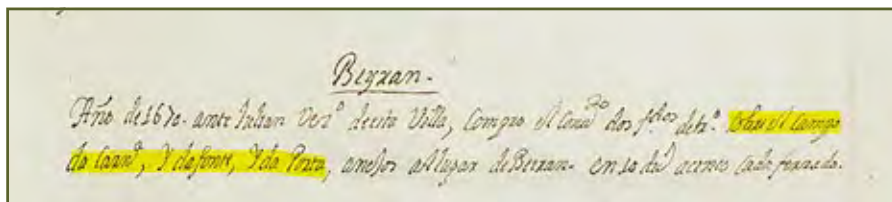 Beyxan.
Año de 1670. ante Julian Vez.º de esta Villa, Compro el Conv.to dos f.dos de tr.ª sobre el Campo
da Carn.ª, Y da fonte, Y da Porta, anexos al lugar de Beixan. en 10 du.s acemos cada ferrado.